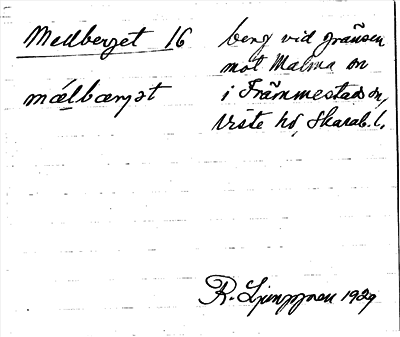 Medberget 16
mǽlbærjət
berg vid gränsen
mot Malma sn
i Främmestads sn,
Viste hd, Skarab. l.
R. Ljunggren 1929